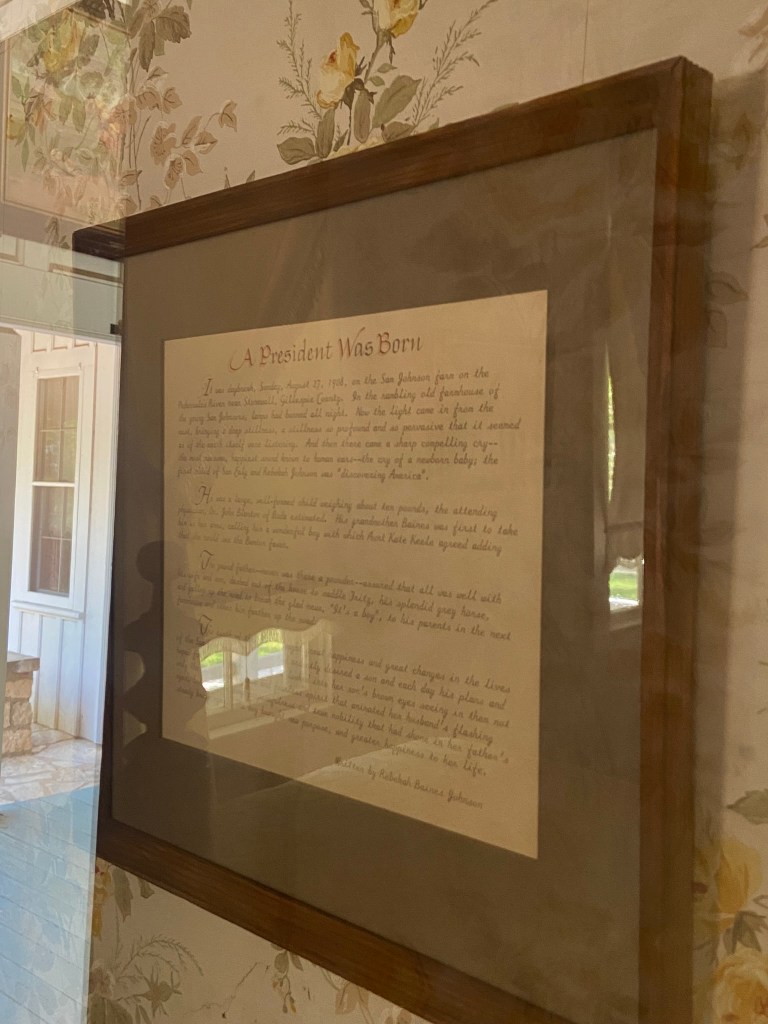 A President Was Born
It was daybreak, Sunday, August 27, 1908, on the Sam Johnson farm on the
Pedernales River near Stonewall, Gillespie County. In the rambling old farmhouse of
the young Sam Johnsons, lamps had burned all night. Now the light came in from the
east, bringing a deep stillness, a stillness so profound and so pervasive that it seemed
as if the earth itself were listening. And then there came a sharp compelling cry--
the most awesome, happiest sound known to human ears--the cry of a newborn baby; the
first child of Sam Ealy and Rebekah Johnson was "discovering America".
He was a large, well-formed child weighing about ten pounds, the attending
physician, Dr. John Blanton of Buda estimated. His grandmother Baines was first to take
him in her arms, calling him a wonderful boy with which Aunt Kate Keele agreed adding
that she could see the Bunton favor.
The proud father--never was there a prouder--assured that all was well with
his wife and son, dashed out of the house to saddle Fritz, his splendid grey horse,
and gallop up the road to break the glad news, "It's a boy", to his parents in the next
farmhouse and
happiness and great changes in the lives
of the
desired a son and each day his plans and
her son's brown eyes seeing in them not
spirit that animated her husband's flashing
and true nobility that had shone in her father's
purpose, and greater happiness to her life.
Written by Rebekah Baines Johnson